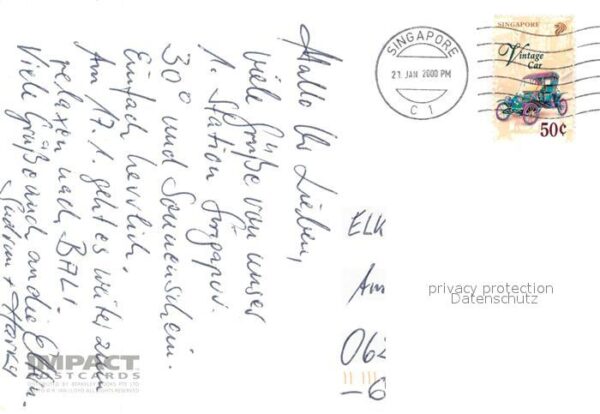 Hallo Ihr Lieben,
viele Grüße von unser
1. Station Singapur.
30° und Sonnenschein.
Einfach herrlich.
Am 17.1. geht es weiter zum
relaxen nach BALI.
Viele Grüße auch an die Eltern.
Gudrun + Harry
SINGAPORE
21 JAN 2000 PM
C 1
SINGAPORE
Vintage
Car
50¢
ELK
Am
06
-6
privacy protection
Datenschutz
IMPACT
POSTCARDS